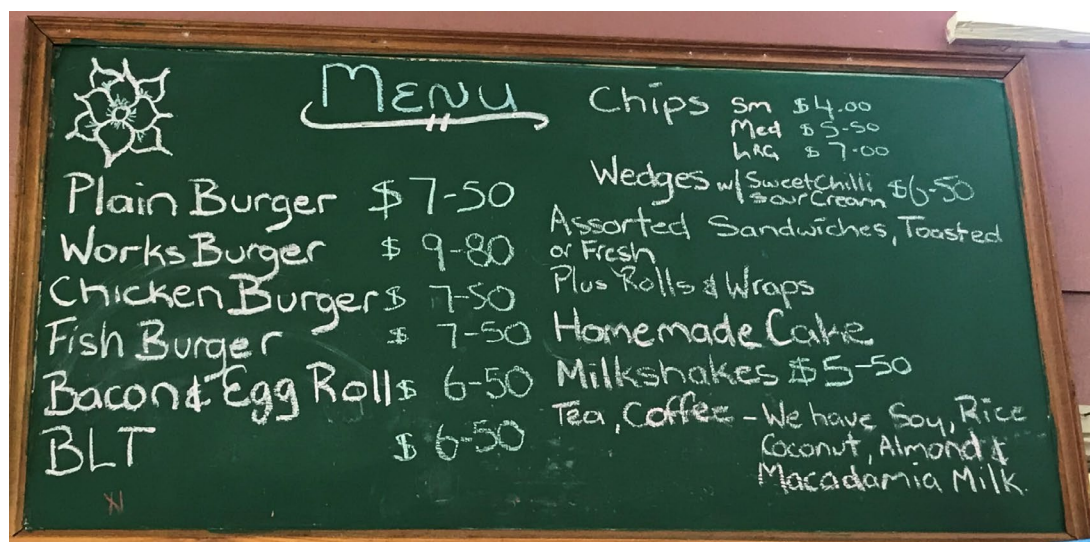 Menu
Plain Burger $7-50
Works Burger $ 9-80
Chicken Burger $ 7-50
Fish Burger $ 7-50
Bacon & Egg Roll $ 6-50
BLT $ 6-50
Chips Sm $4.00
Med $5-50
LRG $7-00
Wedges w/ Sweet Chilli $6-50
Sour Cream
Assorted Sandwiches, Toasted
or Fresh
Plus Rolls & Wraps
Homemade Cake
Milkshakes $5-50
Tea, Coffee - We have Soy, Rice
Coconut, Almond &
Macadamia Milk.